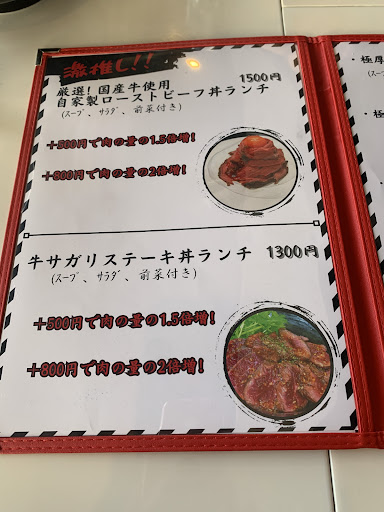 激推し!!
厳選!国産牛使用
自家製ローストビーフ丼ランチ
1500円
(スープ、サラダ、前菜付き)
+500円で肉の量の1.5倍増!
+800円で肉の量の2倍増!
牛サガリステーキ丼ランチ 1300円
(スープ、サラダ、前菜付き)
+500円で肉の量の1.5倍増!
+800円で肉の量の2倍増!
・極厚